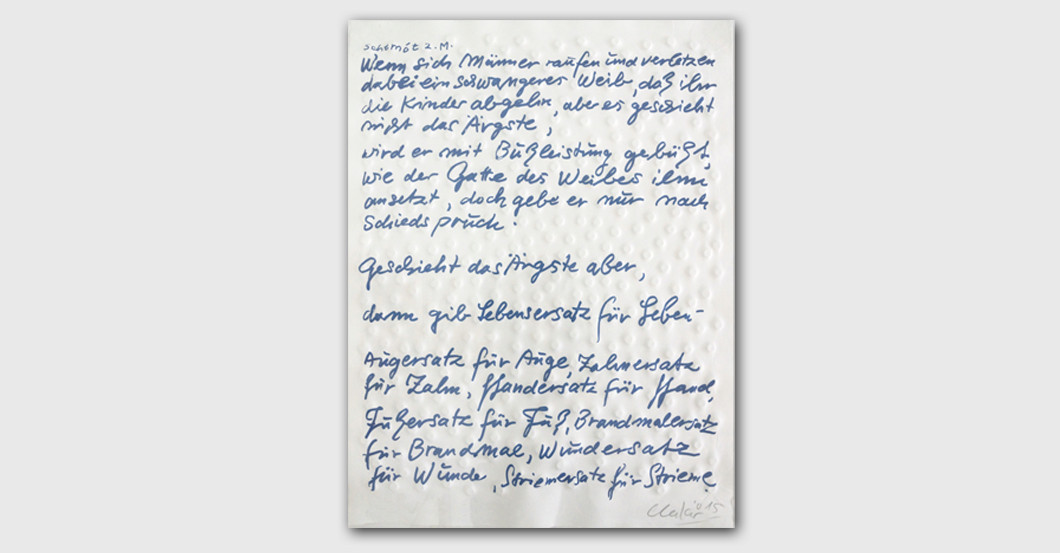 Schemot 2.M.
Wenn sich Männer raufen und verletzen
dabei ein schwangeres Weib, daß ihr
die Kinder abgehn, aber es geschieht
nicht das Ärgste,
wird er mit Bußleistung gebüßt,
wie der Gatte des Weibes ihm
ansetzt, doch gebe er nur nach
Schiedspruch.
Geschieht das Ärgste aber,
dann gib Lebensersatz für Leben-
Augersatz für Auge, Zahnersatz
für Zahn, Handersatz für Hand,
Fußersatz für Fuß, Brandmalersatz
für Brandmal, Wundersatz
für Wunde, Striemersatz für Strieme
'15